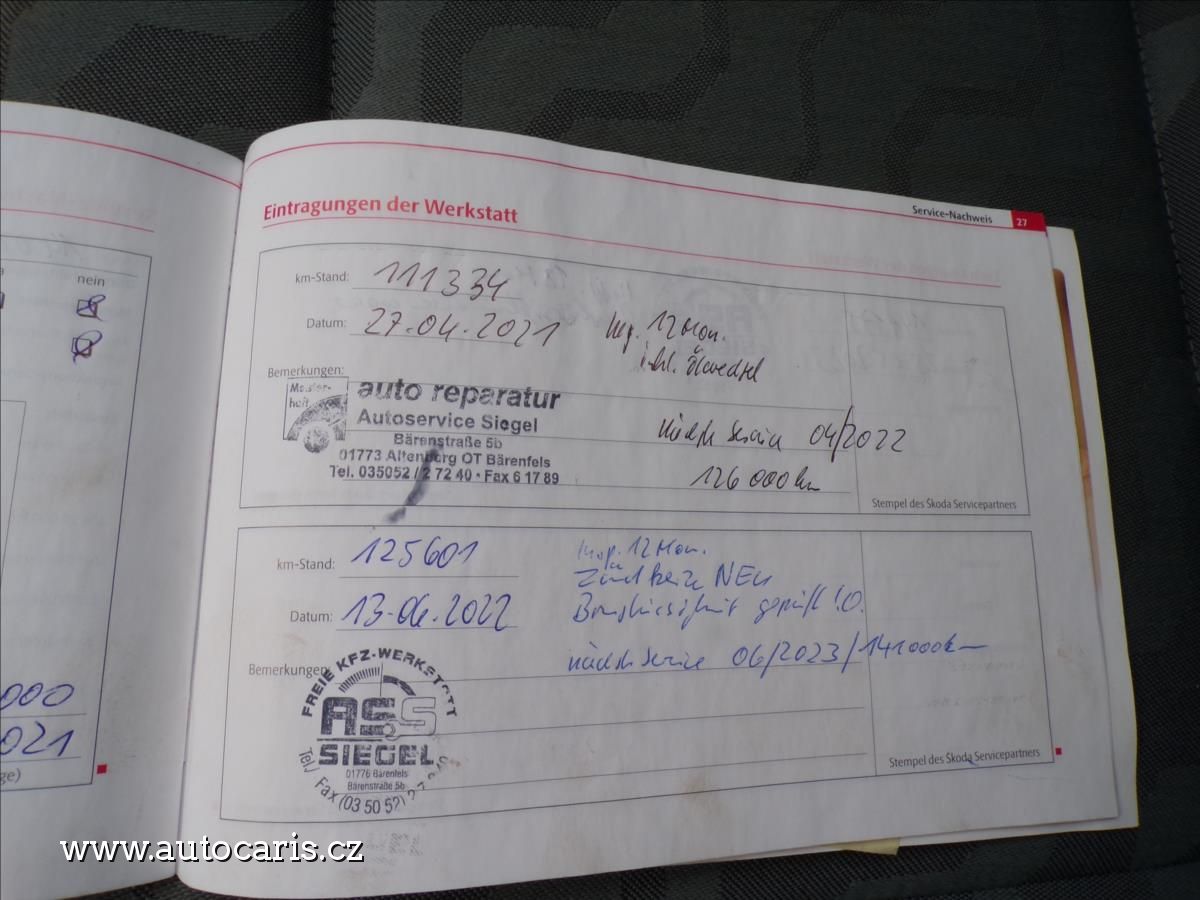 nein
Eintragungen der Werkstatt
Service-Nachweis 27
km-Stand: 111334
Datum: 27.04.2021
Insp. 12 Mon.
inkl. Ölwechsel
Bemerkungen:
Meister-
haft
auto reparatur
Autoservice Siegel
Bärenstraße 5b
01773 Altenberg OT Bärenfels
Tel. 035052 / 2 72 40 • Fax 6 17 89
nächste Service 04/2022
126 000 km
Stempel des Škoda Servicepartners
km-Stand: 125601
Datum: 13.06.2022
Insp. 12 Mon.
Zündkerze NEU
Bremsflüssigkeit geprüft i.O.
nächste Service 06/2023/141000km
Bemerkungen:
FREIE KFZ-WERKSTATT
SIEGEL
01776 Bärenfels
Bärenstraße 5b
Tel./ Fax (03 50 52)
Stempel des Škoda Servicepartners
000
021
www.autocaris.cz